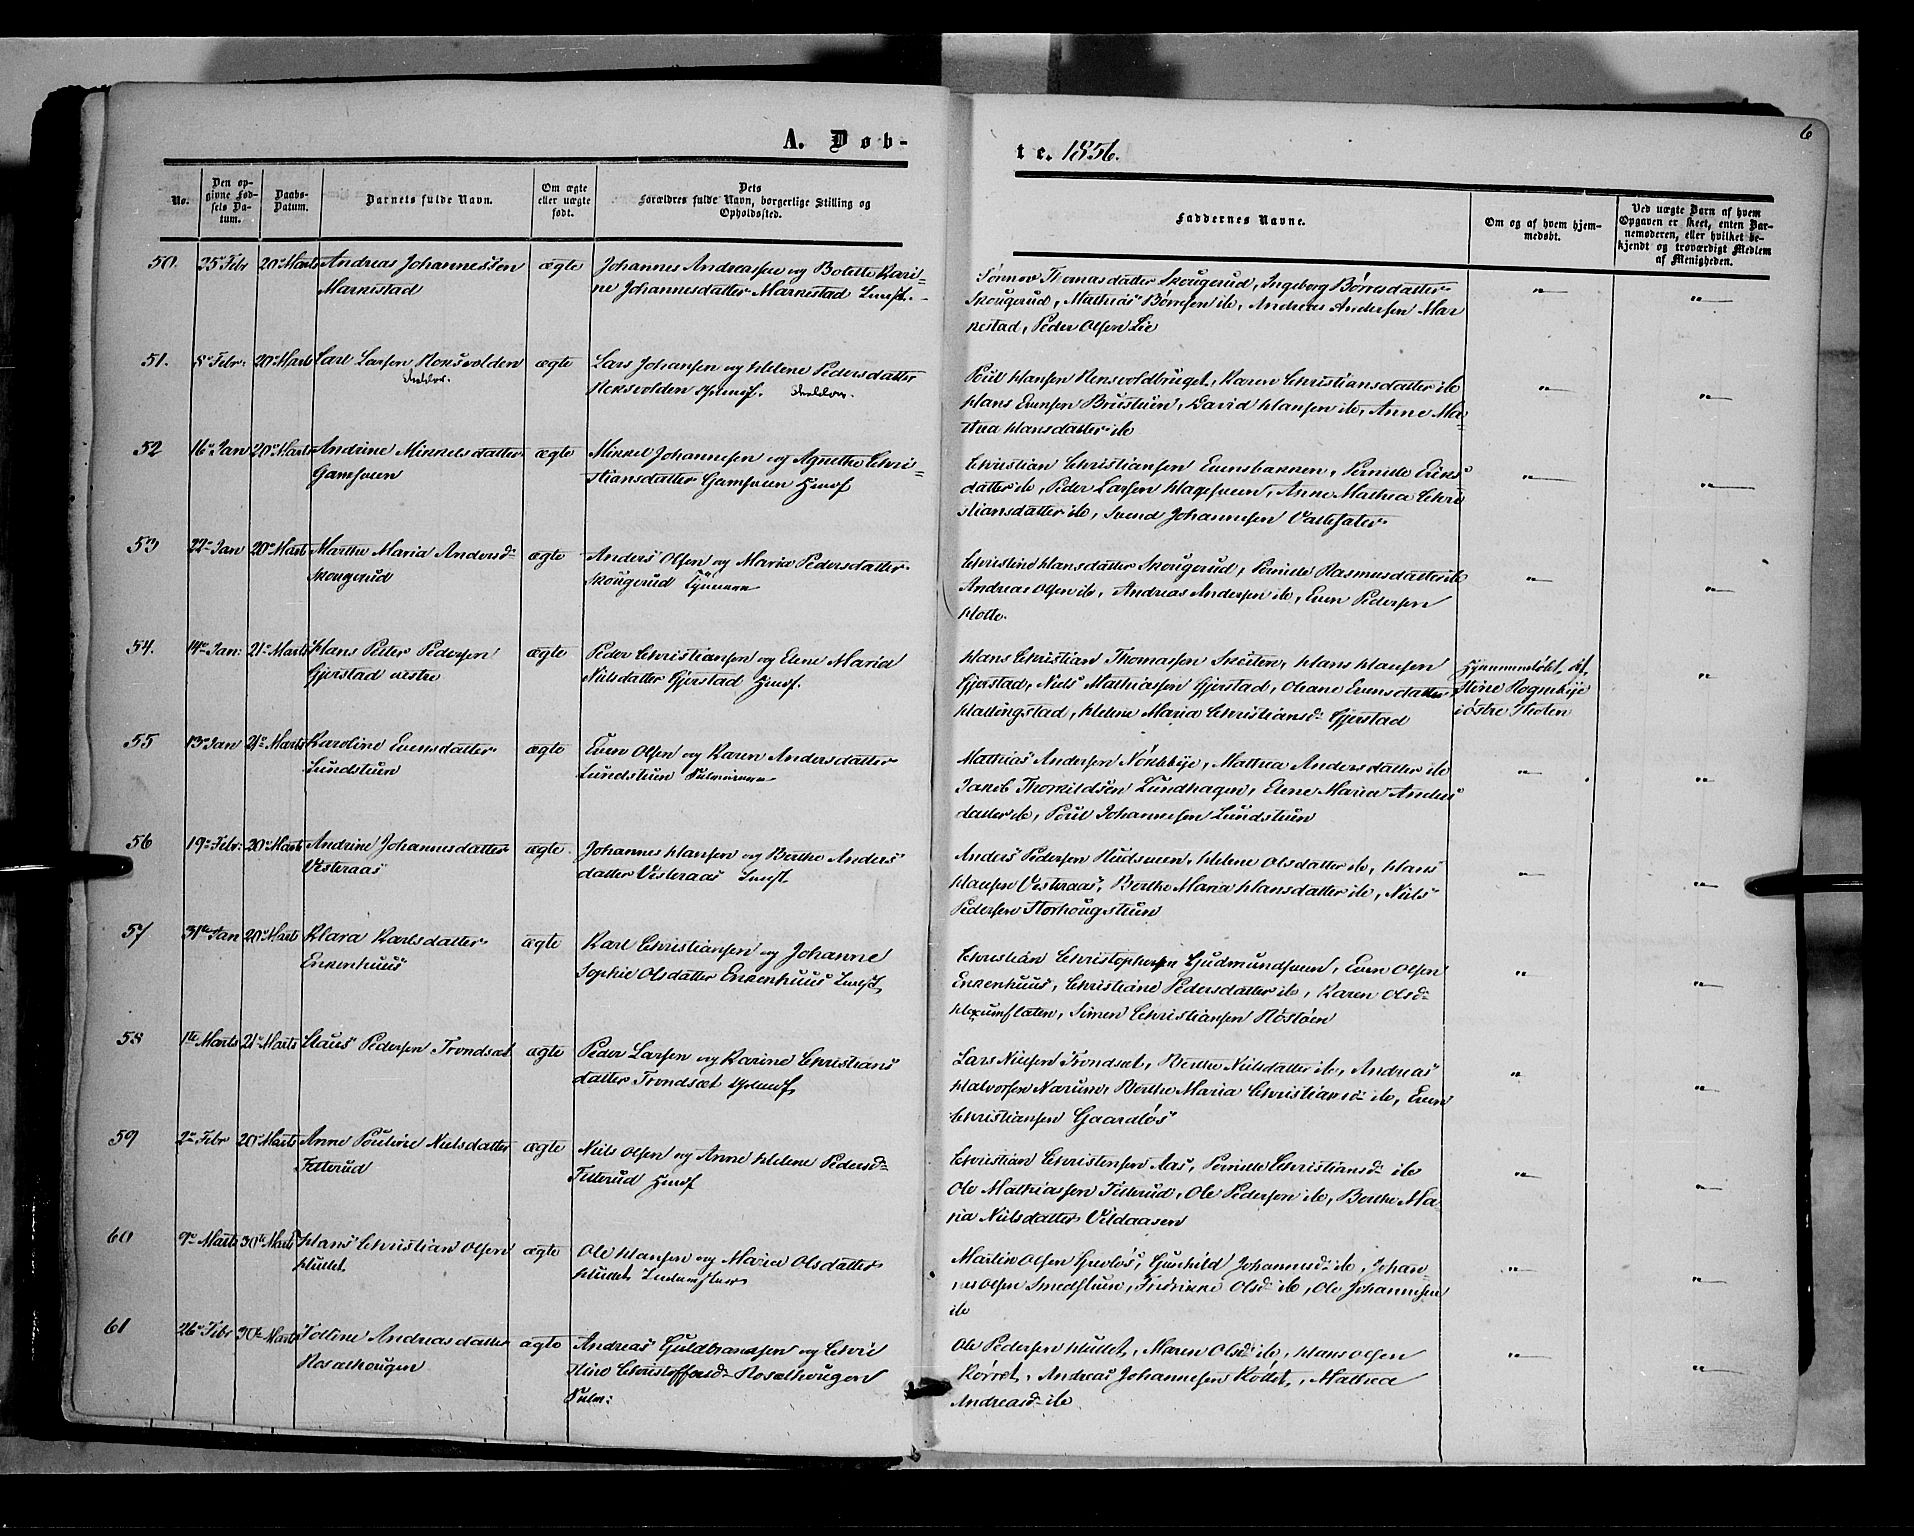 A. Døb-
te. 1856.
6
No.
Den op-
givne Fød-
sels Da-
tum.
Daabs-
Datum.
Barnets fulde Navn.
Om ægte
eller uægte
født.
Dets
Forældres fulde Navn, borgerlige Stilling og
Opholdssted.
Faddernes Navne.
Om og af hvem hjem-
medøbt.
Ved uægte Barn af hvem
Opgaven er skeet, enten Bar-
nemoderen, eller hvilket be-
kjendt og troværdigt Medlem
af Menigheden.
50. Febr 20 Marts Andreas Johannessen ægte Johannes Andreassen og Bolette Kari-
Markestad ne Johannesdatter Markestad
Thomasdatter Skougerud, Ingeborg Børresdatter
Skougerud, Mathias Børresen ib, Andreas Andersen Mar
kestad, Peder Olsen Lie
51. 8 Febr: 20 Marts Carl Larsen ægte Lars Johansen og Helene Pedersdatter
Poul Hansen Karen Christiansdatter ib
Hans Evensen Brustuen, David Hansen ib, Anne Ma-
thea Hansdatter ib
52 16 Jan 20 Marts Andrine Mikkelsdatter ægte Mikkel Johannesen og Agnethe Chri-
Gamsveen stiansdatter Gamsveen
Christian Christiansen Evensbakken, Pernille Eriks
datter ib, Peder Larsen Hagesveen, Anne Mathea Chri
stiansdatter ib, Svend Johannesen
53 22 Jan 20 Marts Marthe Maria Andersd ægte Anders Olsen og Maria Pedersdatter
Skougerud Skougerud
Christine Hansdatter Skougerud, Pernille Rasmusdatter ib
Andreas Olsen ib, Andreas Andersen ib, Even Pedersen
54. 14 Jan: 21 Marts Hans Peter Pedersen ægte Peder Christiansen og Elene Maria
Gjerstad vestre Nilsdatter Gjerstad
Hans Christian Thomassen Hans Hansen
Gjerstad, Niels Mathiassen Gjerstad, Oleane Evensdatter
Hallingstad, Helene Maria Christiansd Gjerstad
Hjemmedøbt af
Stine Rognebye
i østre Thoten
55 13 Jan 21 Marts Karoline Evensdatter ægte Even Olsen og Karen Andersdatter
Lundstuen Lundstuen
Mathias Andersen Mathea Andersdatter ib
Jakob Thorkildsen Lundhagen, Elene Maria Anders
datter ib, Poul Johannesen Lundstuen
56 19 Febr: 20 Marts Andrine Johannesdatter ægte Johannes Hansen og Berthe Anders
Vesteraas datter Vesteraas
Anders Pedersen Helene Olsdatter ib, Hans
Hansen Vesteraas, Berthe Maria Hansdatter ib, Niels
Pedersen Storhougstuen
57 31te Jan 20 Marts Klara Karlsdatter ægte Karl Christiansen og Johanne
Enkenhuus Sophie Olsdatter Enkenhuus
Christian Christophersen Gudmundsveen, Even Olsen
Enkenhuus, Christiane Pedersdatter ib, Karen Olsd
Simen Christiansen
58 1te Marts 21 Marts Pedersen Trondsæt ægte Peder Larsen og Karine Christians
datter Trondsæt
Lars Nilsen Trondsæt, Berthe Nilsdatter ib, Andreas
Halvorsen Narum, Berthe Maria Christiansd ib, Even
Christiansen Gaardløs
59 2 Febr 20 Marts Anne Pouline Nielsdatter ægte Niels Olsen og Anne Helene Pedersd
Tetterud Tetterud
Christian Christensen Aas, Pernille Christiansd ib
Ole Mathiassen Tetterud, Ole Pedersen ib, Berthe Ma-
ria Nielsdatter
60 9 Marts 30te Marts Hans Christian Olsen ægte Ole Hansen og Maria Olsdatter
Martin Olsen Gunhild Johannesd ib, Johan-
nes Olsen Smedstuen, Fredrikke Olsd ib, Ole Johannesen
ib
61 26 Febr 30te Marts Andreasdatter ægte Andreas Guldbrandsen og Chri
Rosalhougen stine Christoffersd Rosalhougen
Ole Pedersen Maren Olsd ib, Hans Olsen
Andreas Johannesen Mathea
Andreasd ib